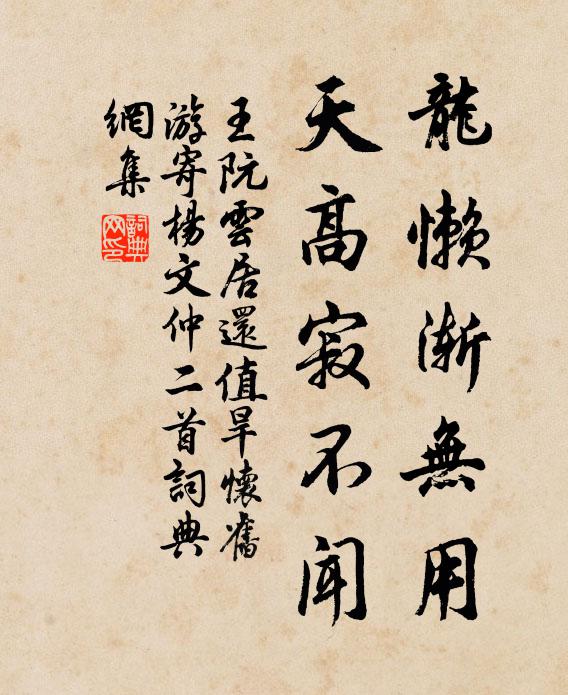 龍懶漸無用
天高寂不聞
王阮雲居還值旱懷舊
游寄楊文仲二首詞典
網集
詞典网印